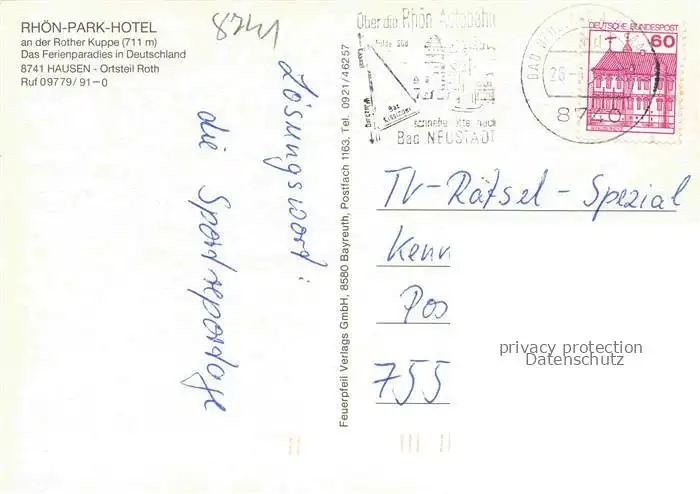 RHÖN-PARK-HOTEL
an der Rother Kuppe (711 m)
Das Ferienparadies in Deutschland
8741 HAUSEN - Ortsteil Roth
Ruf 09779/91-0
8741
Lösungswort:
die Sportreportage
Feuerpfeil Verlags GmbH, 8580 Bayreuth, Postfach 1163, Tel. 0921/46257
Über die Rhön Autobahn
Bad
Kissingen
Bad NEUSTADT
BAD
8740
DEUTSCHE BUNDESPOST
60
TV-Rätsel-Spezial
Kenn
Pos
755
privacy protection
Datenschutz